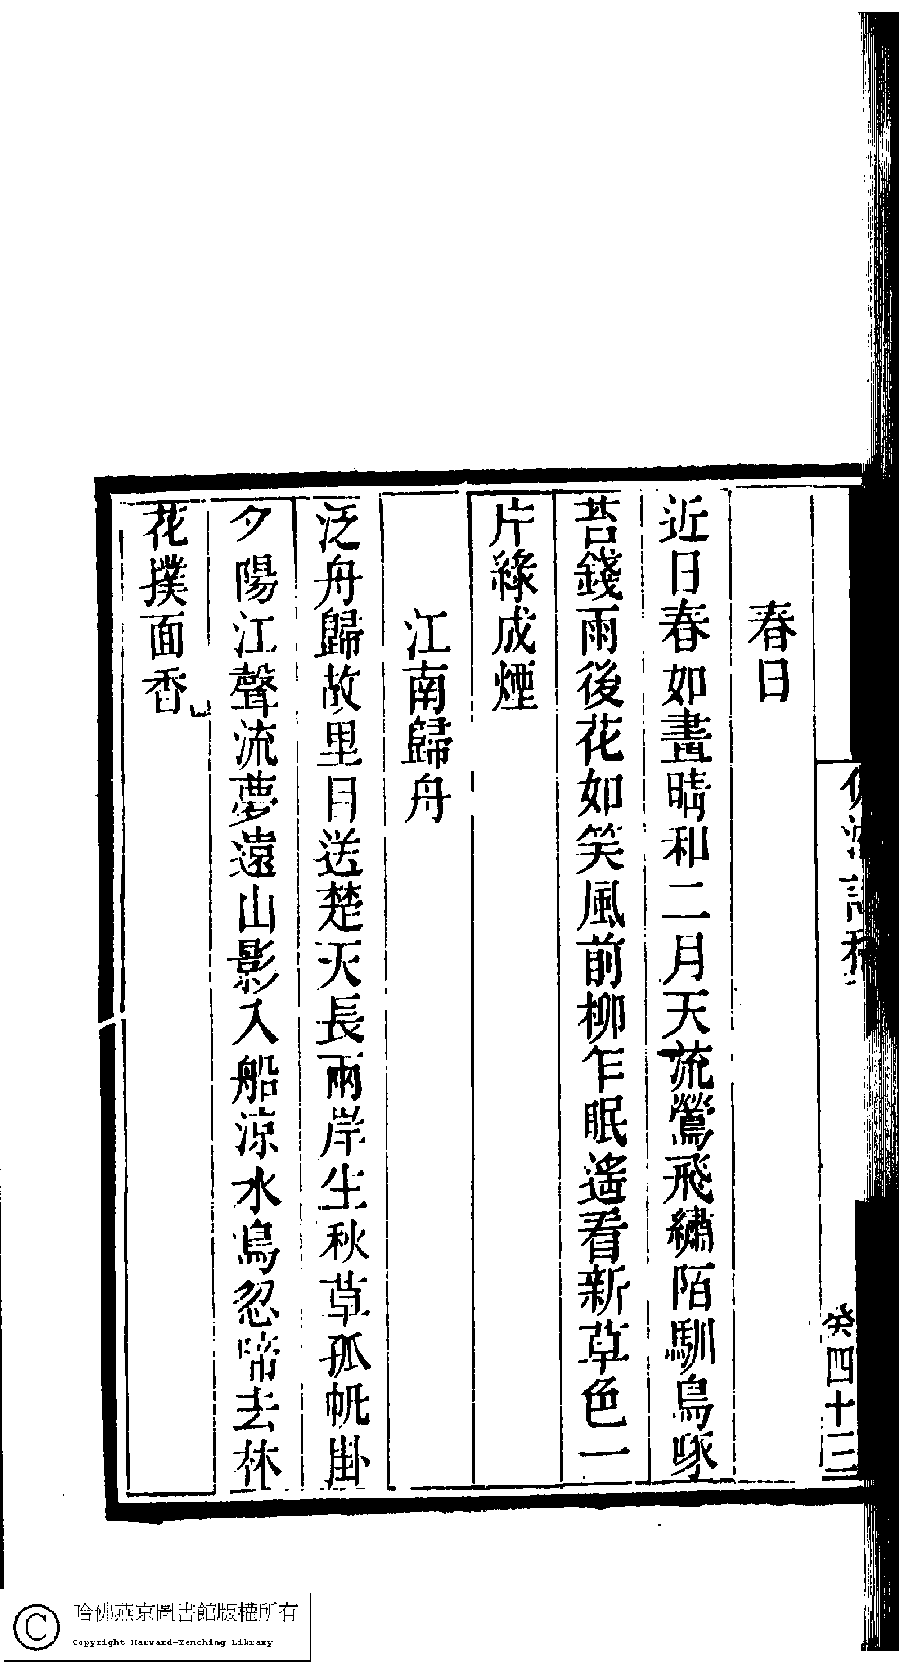 春日
近日春如畫晴和二月天流鶯飛繡陌馴鳥啄
苔錢雨後花如笑風前柳乍眠遙看新草色一
片綠成煙
江南歸舟
泛舟歸故里目送楚天長兩岸生秋草孤帆掛
夕陽江聲流夢遠山影入船涼水鳥忽啼去林
花撲面香
癸四十三
哈佛燕京圖書館版權所有
Copyright Harvard-Yenching Library